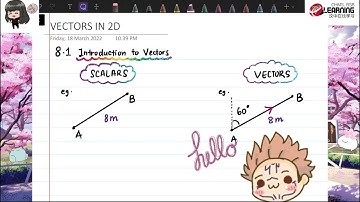 VECTORS IN 2D
Friday, 18 March 2022 10:39 PM
8.1 Introduction to Vectors
SCALARS VECTORS
eg. eg.
B B
60°
8m 8m
A A
hello
LEARNING